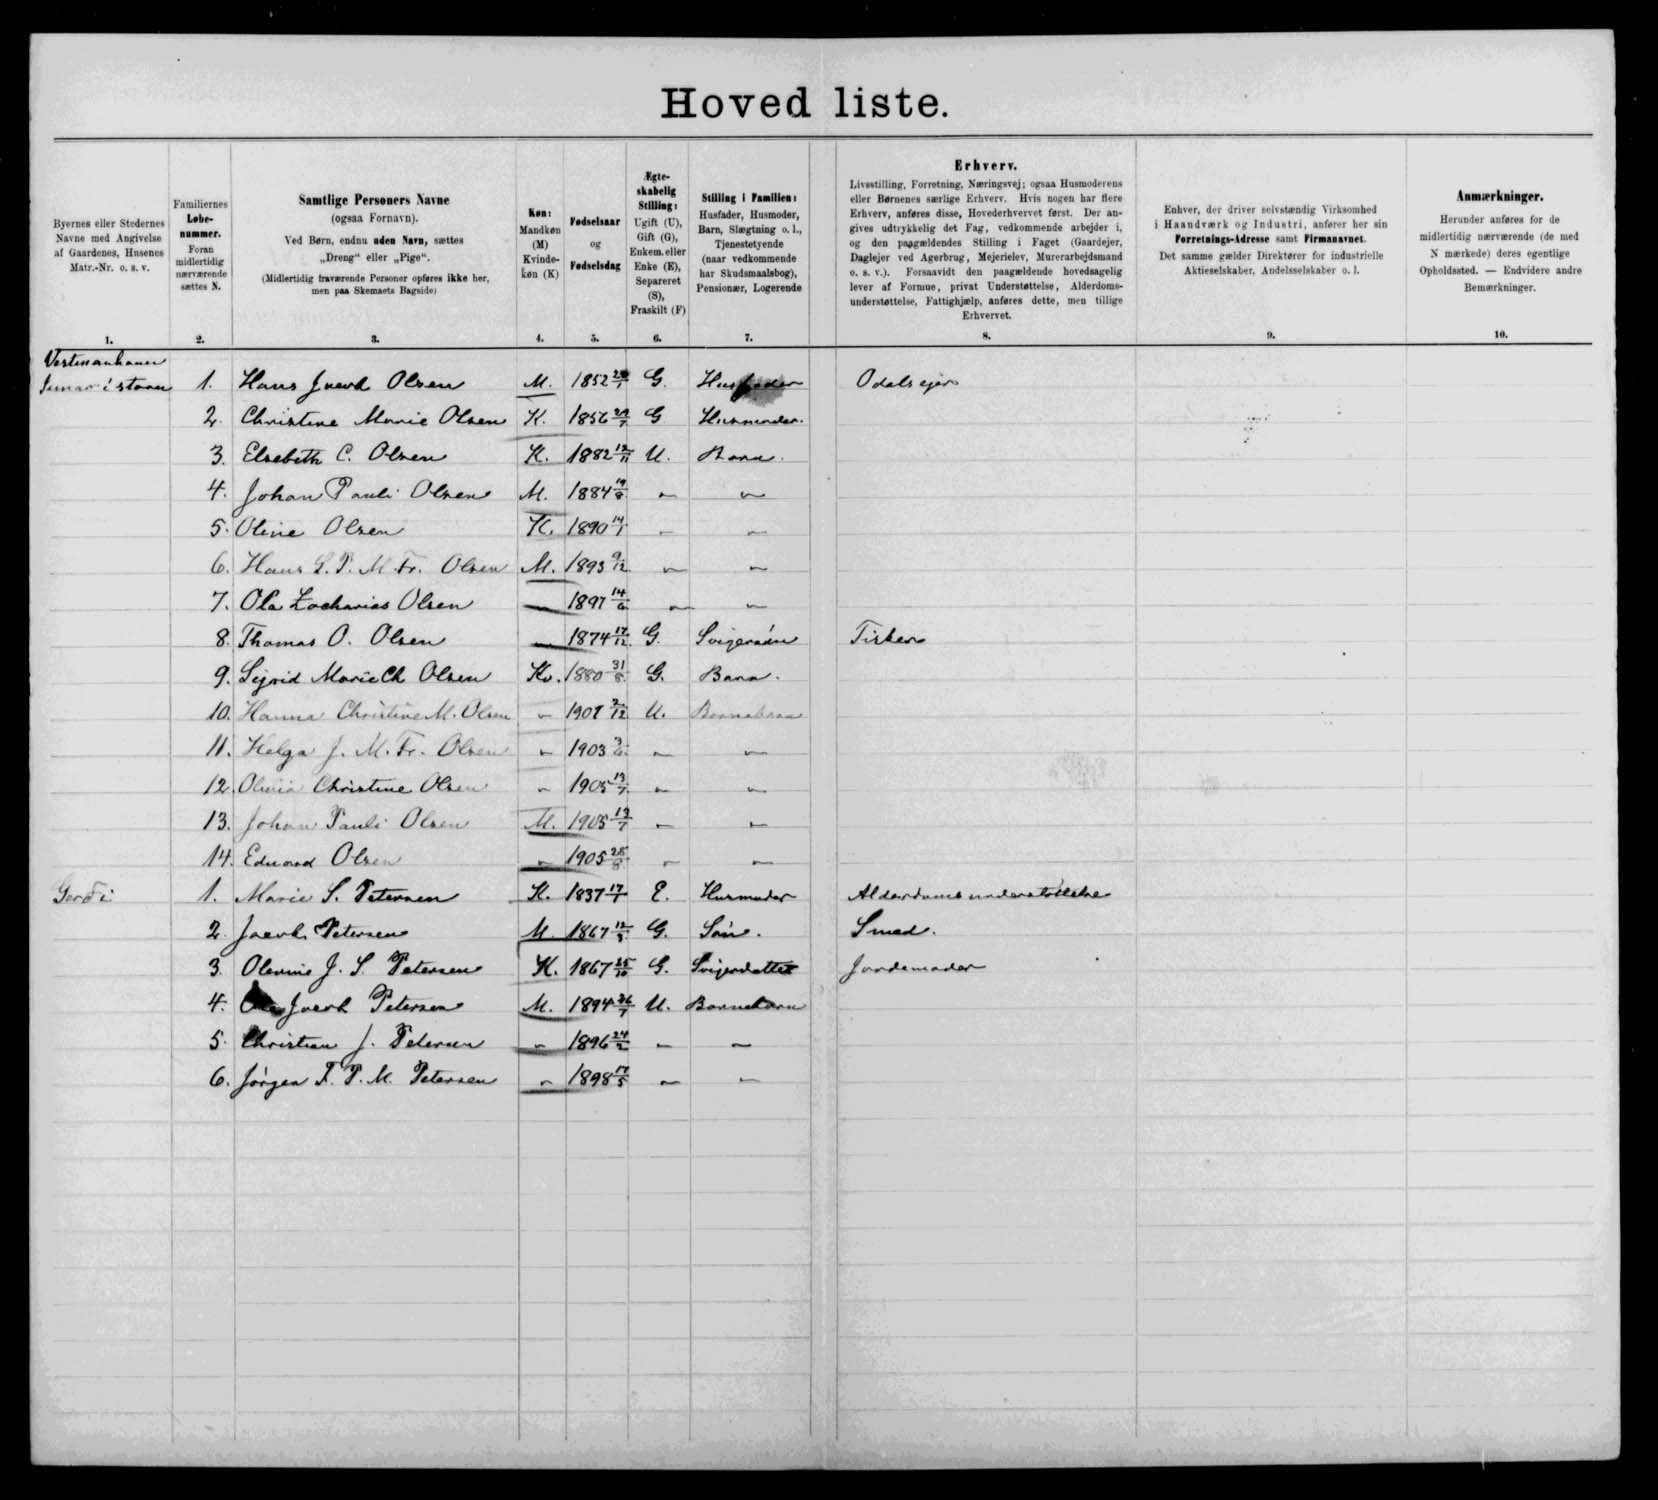 Hoved liste.
Byernes eller Stedernes
Navne med Angivelse
af Gaardenes, Husenes
Matr.-Nr. o. s. v.
Familiernes
Løbe-
nummer.
Foran
midlertidig
nærværende
sættes N.
Samtlige Personers Navne
(ogsaa Fornavn).
Ved Børn, endnu uden Navn, sættes
„Dreng“ eller „Pige“.
(Midlertidig fraværende Personer opføres ikke her,
men paa Skemaets Bagside)
Køn:
Mandkøn
(M)
Kvinde-
køn (K)
Fødselsaar
og
Fødselsdag
Ægte-
skabelig
Stilling:
Ugift (U),
Gift (G),
Enkem. eller
Enke (E),
Separeret
(S),
Fraskilt (F)
Stilling i Familien:
Husfader, Husmoder,
Barn, Slægtning o. l.,
Tjenestetyende
(naar vedkommende
har Skudsmaalsbog),
Pensionær, Logerende
Erhverv.
Livsstilling, Forretning, Næringsvej; ogsaa Husmoderens
eller Børnenes særlige Erhverv. Hvis nogen har flere
Erhverv, anføres disse, Hovederhvervet først. Der an-
gives udtrykkelig det Fag, vedkommende arbejder i,
og den paagældendes Stilling i Faget (Gaardejer,
Daglejer ved Agerbrug, Mejerielev, Murerarbejdsmand
o. s. v.). Forsaavidt den paagældende hovedsagelig
lever af Formue, privat Understøttelse, Alderdoms-
understøttelse, Fattighjælp, anføres dette, men tillige
Erhvervet.
Enhver, der driver selvstændig Virksomhed
i Haandværk og Industri, anfører her sin
Forretnings-Adresse samt Firmanavnet.
Det samme gælder Direktører for industrielle
Aktieselskaber, Andelsselskaber o. l.
Anmærkninger.
Herunder anføres for de
midlertidig nærværende (de med
N mærkede) deres egentlige
Opholdssted. — Endvidere andre
Bemærkninger.
1. 2. 3. 4. 5. 6. 7. 8. 9. 10.
Vestmanhavn
i stovu 1. Hans Jacob Olsen M. 1852 G. Husfader Odelsejer
2. Christine Marie Olsen K. 1856 29/7 G Husmoder.
3. Elsebeth C. Olsen K. 1882 12/11 U. Barn.
4. Johan Pauli Olsen M. 1884 19/8 " "
5. Oline Olsen K. 1890 14/1 " "
6. Hans S. P. M. Fr. Olsen M. 1893 9/12 " "
7. Ola Zacharias Olsen " 1897 14/6 " "
8. Thomas O. Olsen " 1874 17/12 G. Svigersøn Fisker
9. Sigrid Marie Ch Olsen Kv. 1880 31/8 G. Barn.
10. Hanna Christine M. Olsen " 1901 2/12 U. Barnebarn
11. Helga J. M. Fr. Olsen " 1903 3/6 " "
12. Olivia Christine Olsen " 1905 13/7 " "
13. Johan Pauli Olsen M. 1905 13/7 " "
14. Edward Olsen " 1905 28/8 " "
Gerði 1. Marie S. Petersen K. 1837 17/1 E. Husmoder Alderdomsunderstøttelse
2. Jacob Petersen M. 1867 12/3 G. Søn. Smed.
3. Olevine J. S. Petersen K. 1867 25/10 G. Svigerdatter Jordemoder
4. Jacob Petersen M. 1894 26/7 U. Barnebarn
5. Christian J. Petersen " 1896 24/2 " "
6. Jørgen F. P. M. Petersen " 1898 17/5 " "